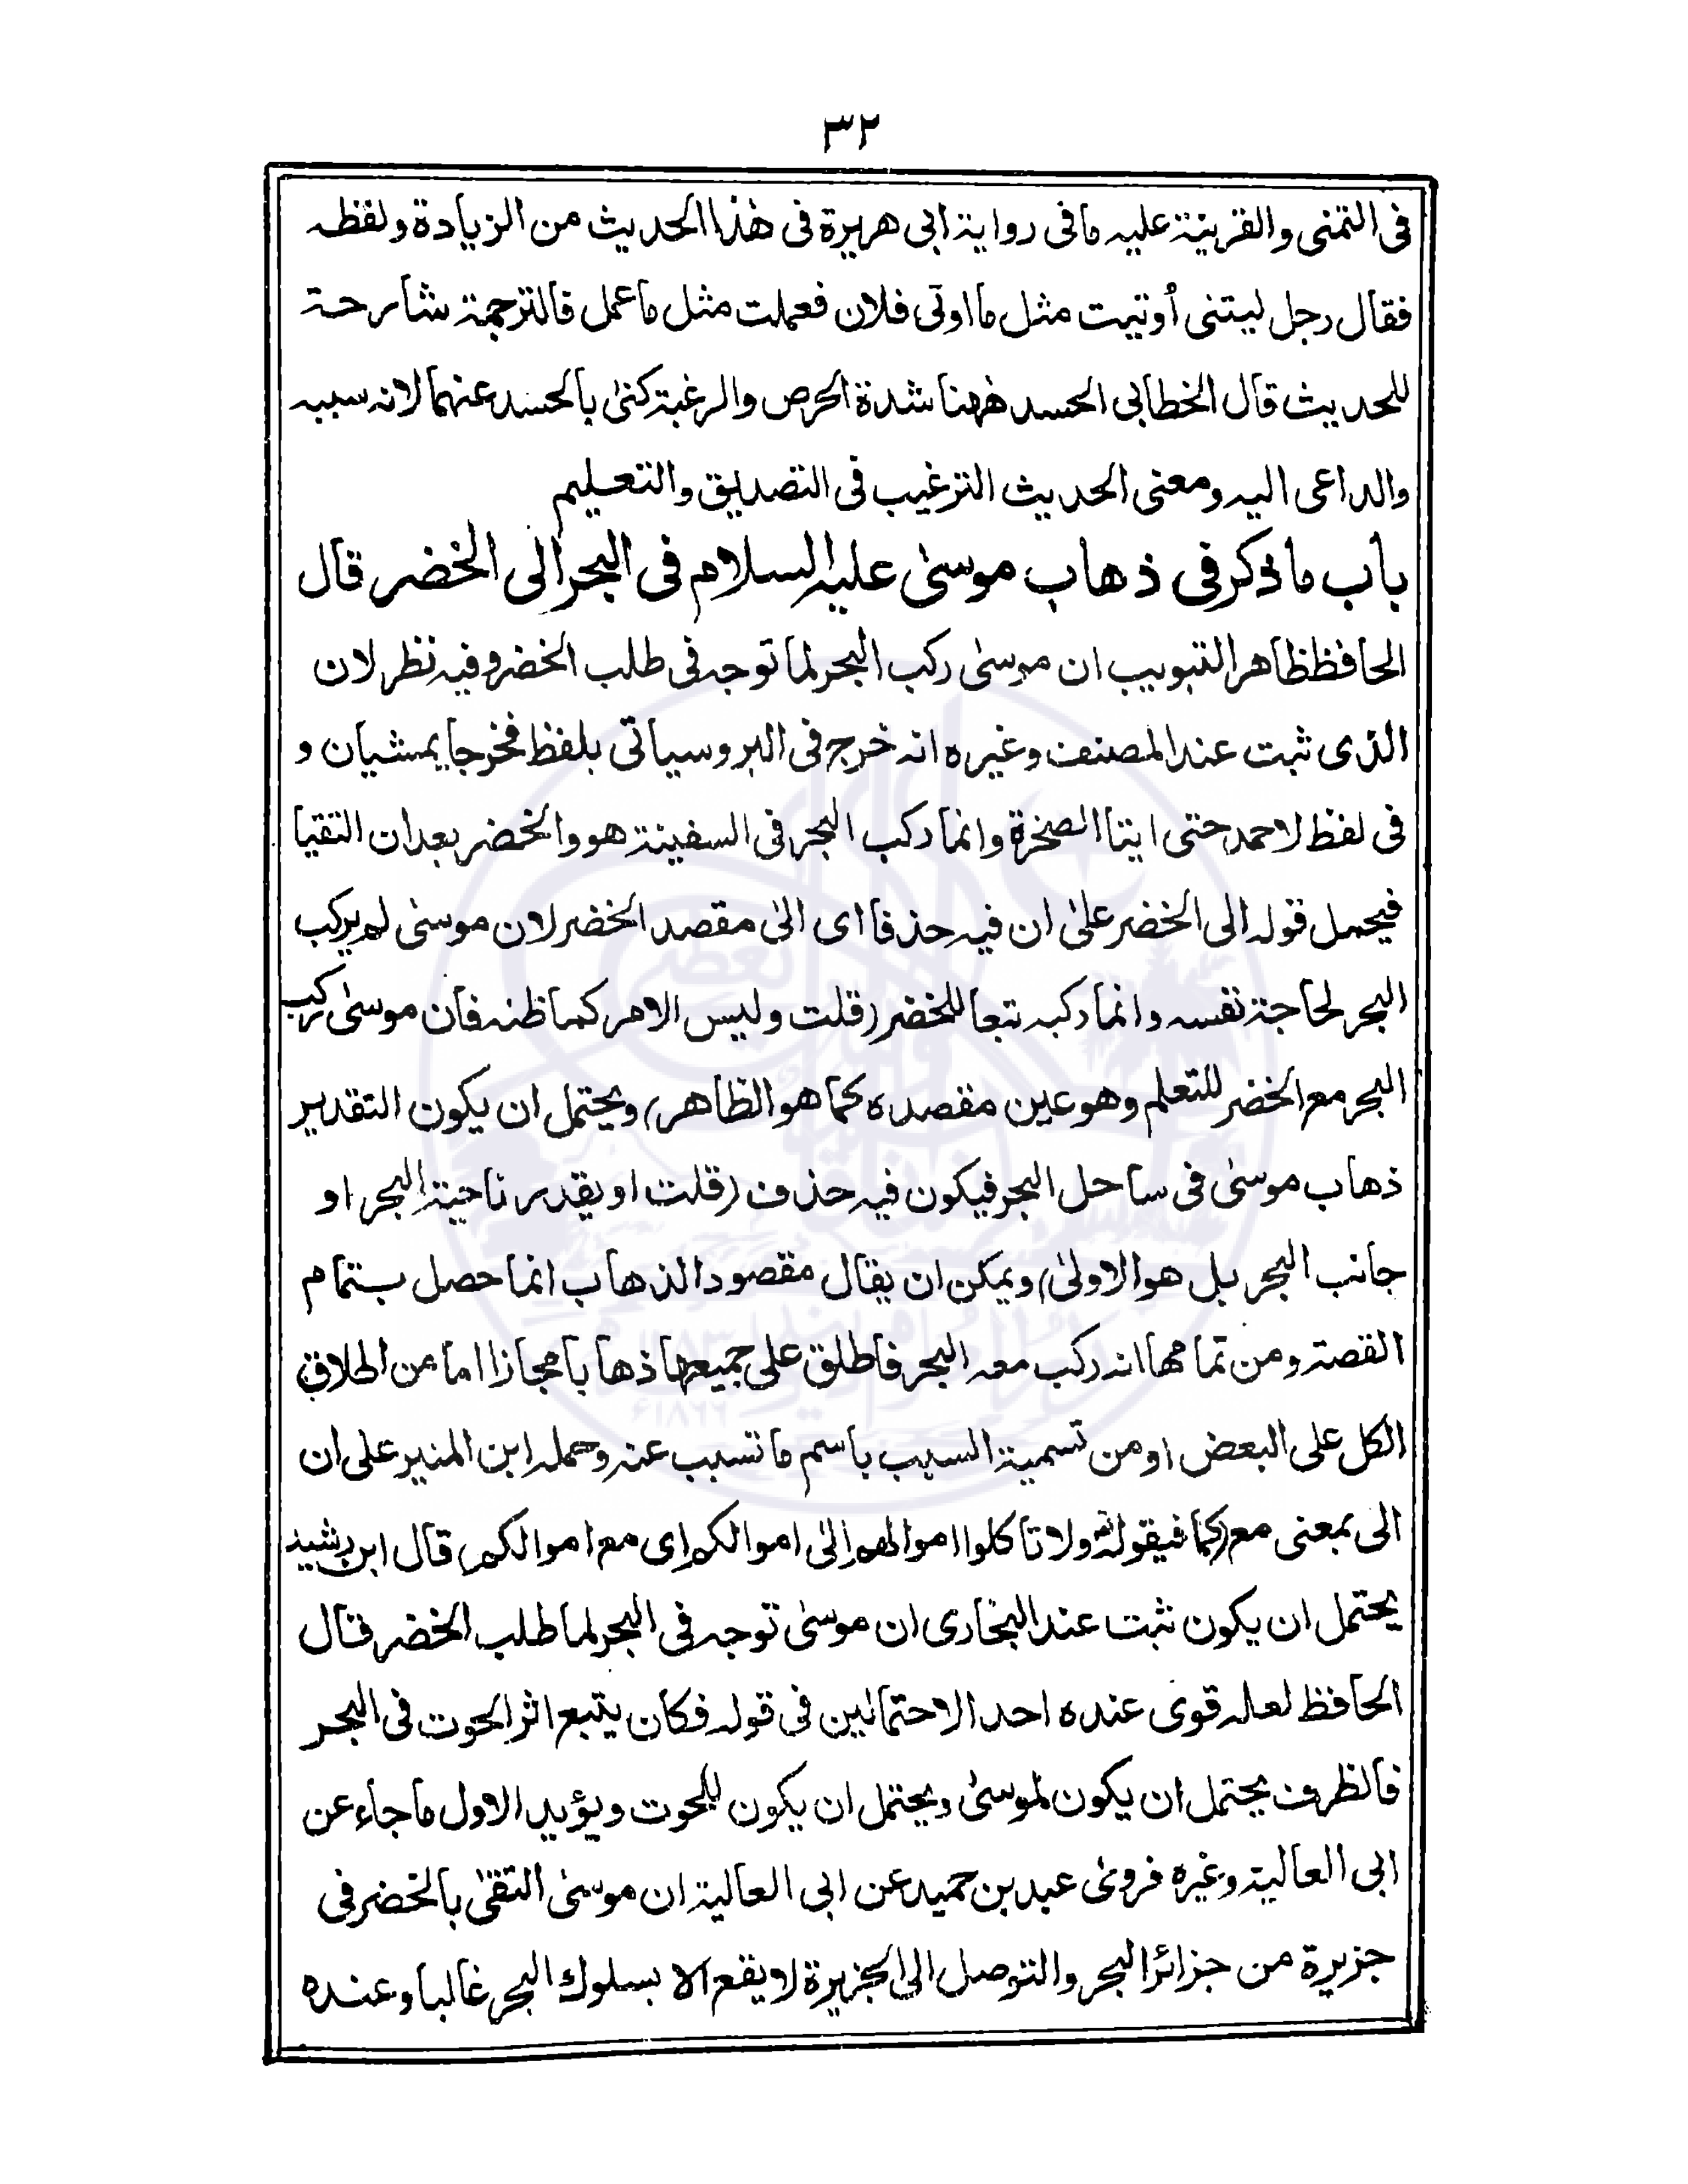 ٣٢
فى التمنى والقرينة عليه ما فى رواية ابى هريرة فى هٰذا الحديث من الزيادة ولفظه
فقال رجل ليتنى أوتيت مثل ما اوتى فلان فعملت مثل ما عمل فالترجمة شارحة
للحديث قال الخطابى الحسد هٰهنا شدة الحرص والرغبة كنىٰ بالحسد عنهما لانه سببه
والداعى اليه ومعنى الحديث الترغيب فى التصديق والتعليم
باب ما ذكر فى ذهاب موسىٰ عليه السلام فى البحر الى الخضر قال
الحافظ ظاهر التبويب ان موسىٰ ركب البحر لما توجه فى طلب الخضر وفيه نظر لان
الذى ثبت عند المصنف وغيره انه خرج فى البر وسياتى بلفظ فخرجا يمشيان و
فى لفظ لاحمد حتى اتيا الصخرة وانما ركب البحر فى السفينة هو والخضر بعد ان التقيا
فيحمل قوله الى الخضر علىٰ ان فيه حذفا اى الىٰ مقصد الخضر لان موسىٰ لم يركب
البحر لحاجة نفسه وانما ركبه تبعا للخضر (قلت وليس الامر كما ظنه فان موسىٰ ركب
البحر مع الخضر للتعلم وهو عين مقصده كما هو الظاهر) ويحتمل ان يكون التقدير
ذهاب موسىٰ فى ساحل البحر فيكون فيه حذف (قلت او يقدر ناحية البحر او
جانب البحر بل هو الاولىٰ) ويمكن ان يقال مقصود الذهاب انما حصل بتمام
القصة ومن تمامها انه ركب معه البحر فاطلق على جميعها ذهابا مجازا اما من اطلاق
الكل على البعض او من تسمية السبب باسم ما تسبب عنه وحمله ابن المنير على ان
الى بمعنى مع (كما فى قوله ولا تاكلوا اموالهم الىٰ اموالكم اى مع اموالكم) قال ابن رشيد
يحتمل ان يكون ثبت عند البخارى ان موسىٰ توجه فى البحر لما طلب الخضر قال
الحافظ لعله قوى عنده احد الاحتمالين فى قوله فكان يتبع اثر الحوت فى البحر
فالظرف يحتمل ان يكون لموسىٰ ويحتمل ان يكون للحوت ويؤيد الاول ما جاء عن
ابى العالية وغيره فروىٰ عبد بن حميد عن ابى العالية ان موسىٰ التقىٰ بالخضر فى
جزيرة من جزائر البحر والتوصل الى الجزيرة لا يقع الا بسلوك البحر غالبا وعنده